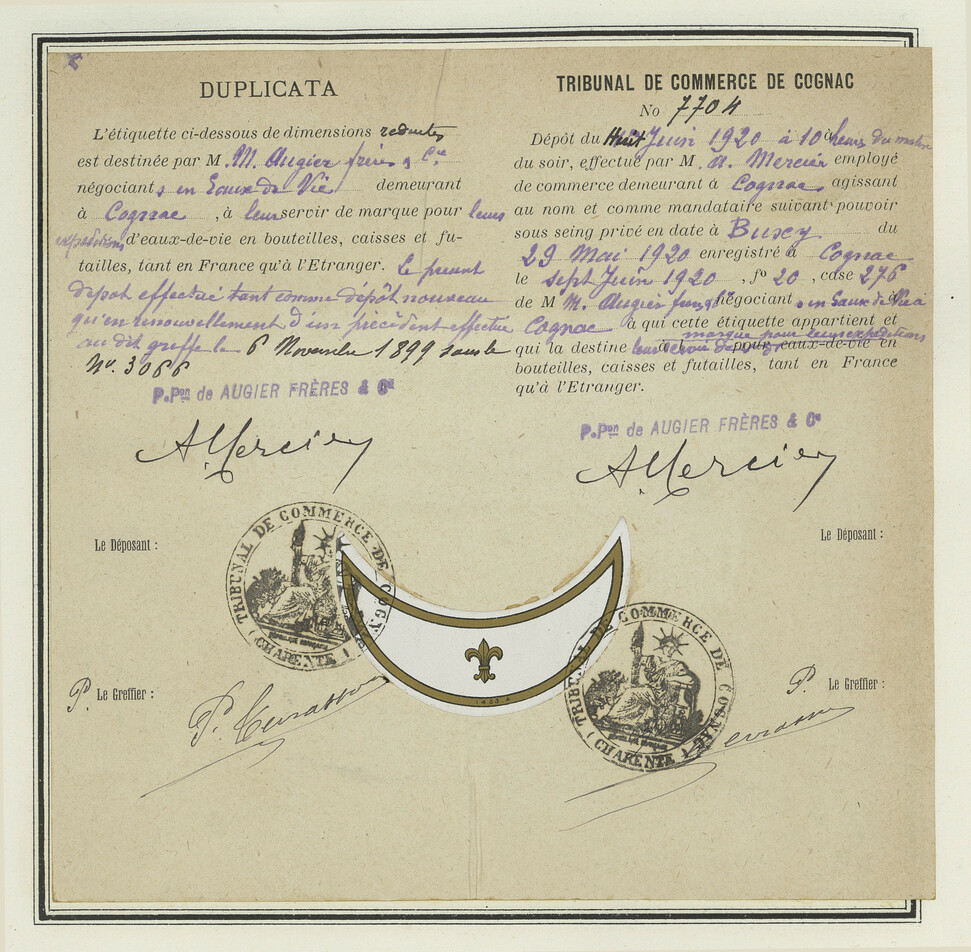 DUPLICATA
L'étiquette ci-dessous de dimensions reduites
est destinée par M. M. Augier frères & Cie
négociants en Eaux de Vie demeurant
à Cognac, à leur servir de marque pour leurs
expéditions d'eaux-de-vie en bouteilles, caisses et fu-
tailles, tant en France qu'à l'Etranger. Le présent
dépot effectué tant comme dépôt nouveau
qu'en renouvellement d'un précédent effectué
au dit greffe le 6 Novembre 1899 sous le
No. 3066
P.Pon de AUGIER FRÈRES & Cie
A. Mercier
Le Déposant :
TRIBUNAL DE COMMERCE DE COGNAC
(CHARENTE)
P. Le Greffier :
TRIBUNAL DE COMMERCE DE COGNAC
No 7704
Dépôt du Huit Juin 1920 à 10 heures du matin
du soir, effectué par M. A. Mercier employé
de commerce demeurant à Cognac agissant
au nom et comme mandataire suivant pouvoir
sous seing privé en date à Buxy du
29 Mai 1920 enregistré à Cognac
le sept Juin 1920, fo 20, case 276
de M M. Augier frères & négociants en Eaux de Vie à
Cognac à qui cette étiquette appartient et
qui la destine à leur servir de marque pour leurs expéditions pour eaux-de-vie en
bouteilles, caisses et futailles, tant en France
qu'à l'Etranger.
P.Pon de AUGIER FRÈRES & Cie
A. Mercier
Le Déposant :
TRIBUNAL DE COMMERCE DE COGNAC
(CHARENTE)
P. Le Greffier :